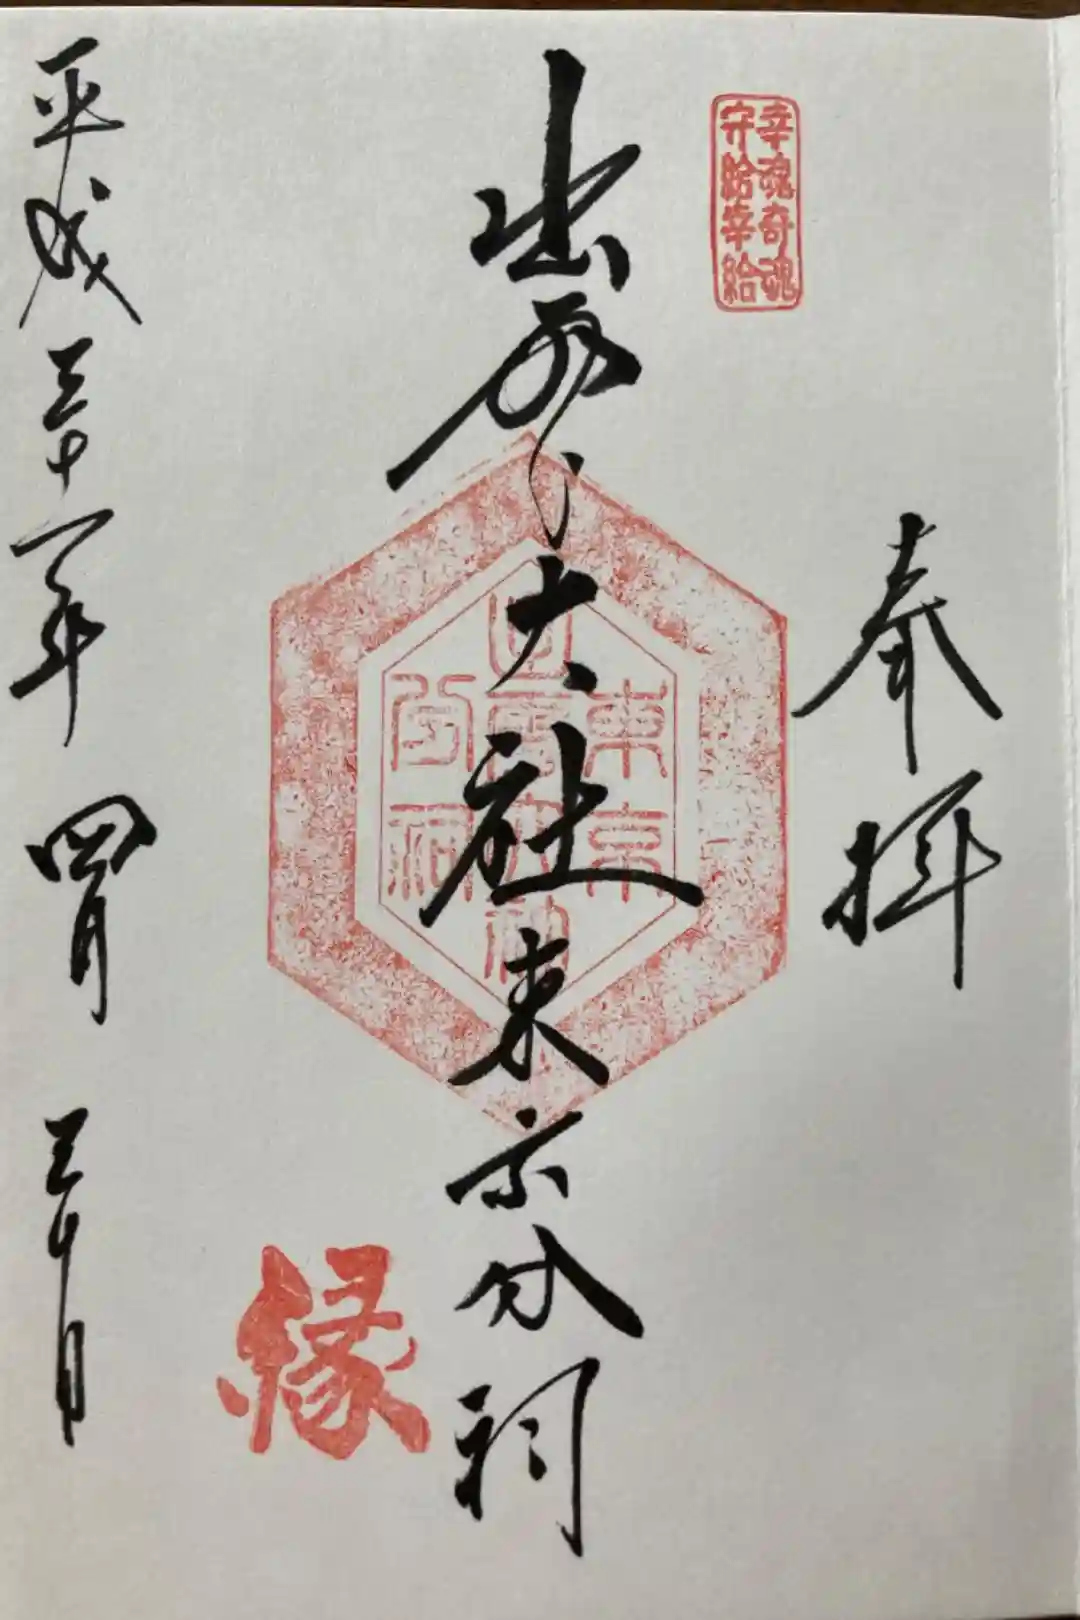 奉拝
幸魂奇魂
守給幸給
出雲大社東京分祠
東京
出雲大神
分祠
縁
平成三十一年四月三十日